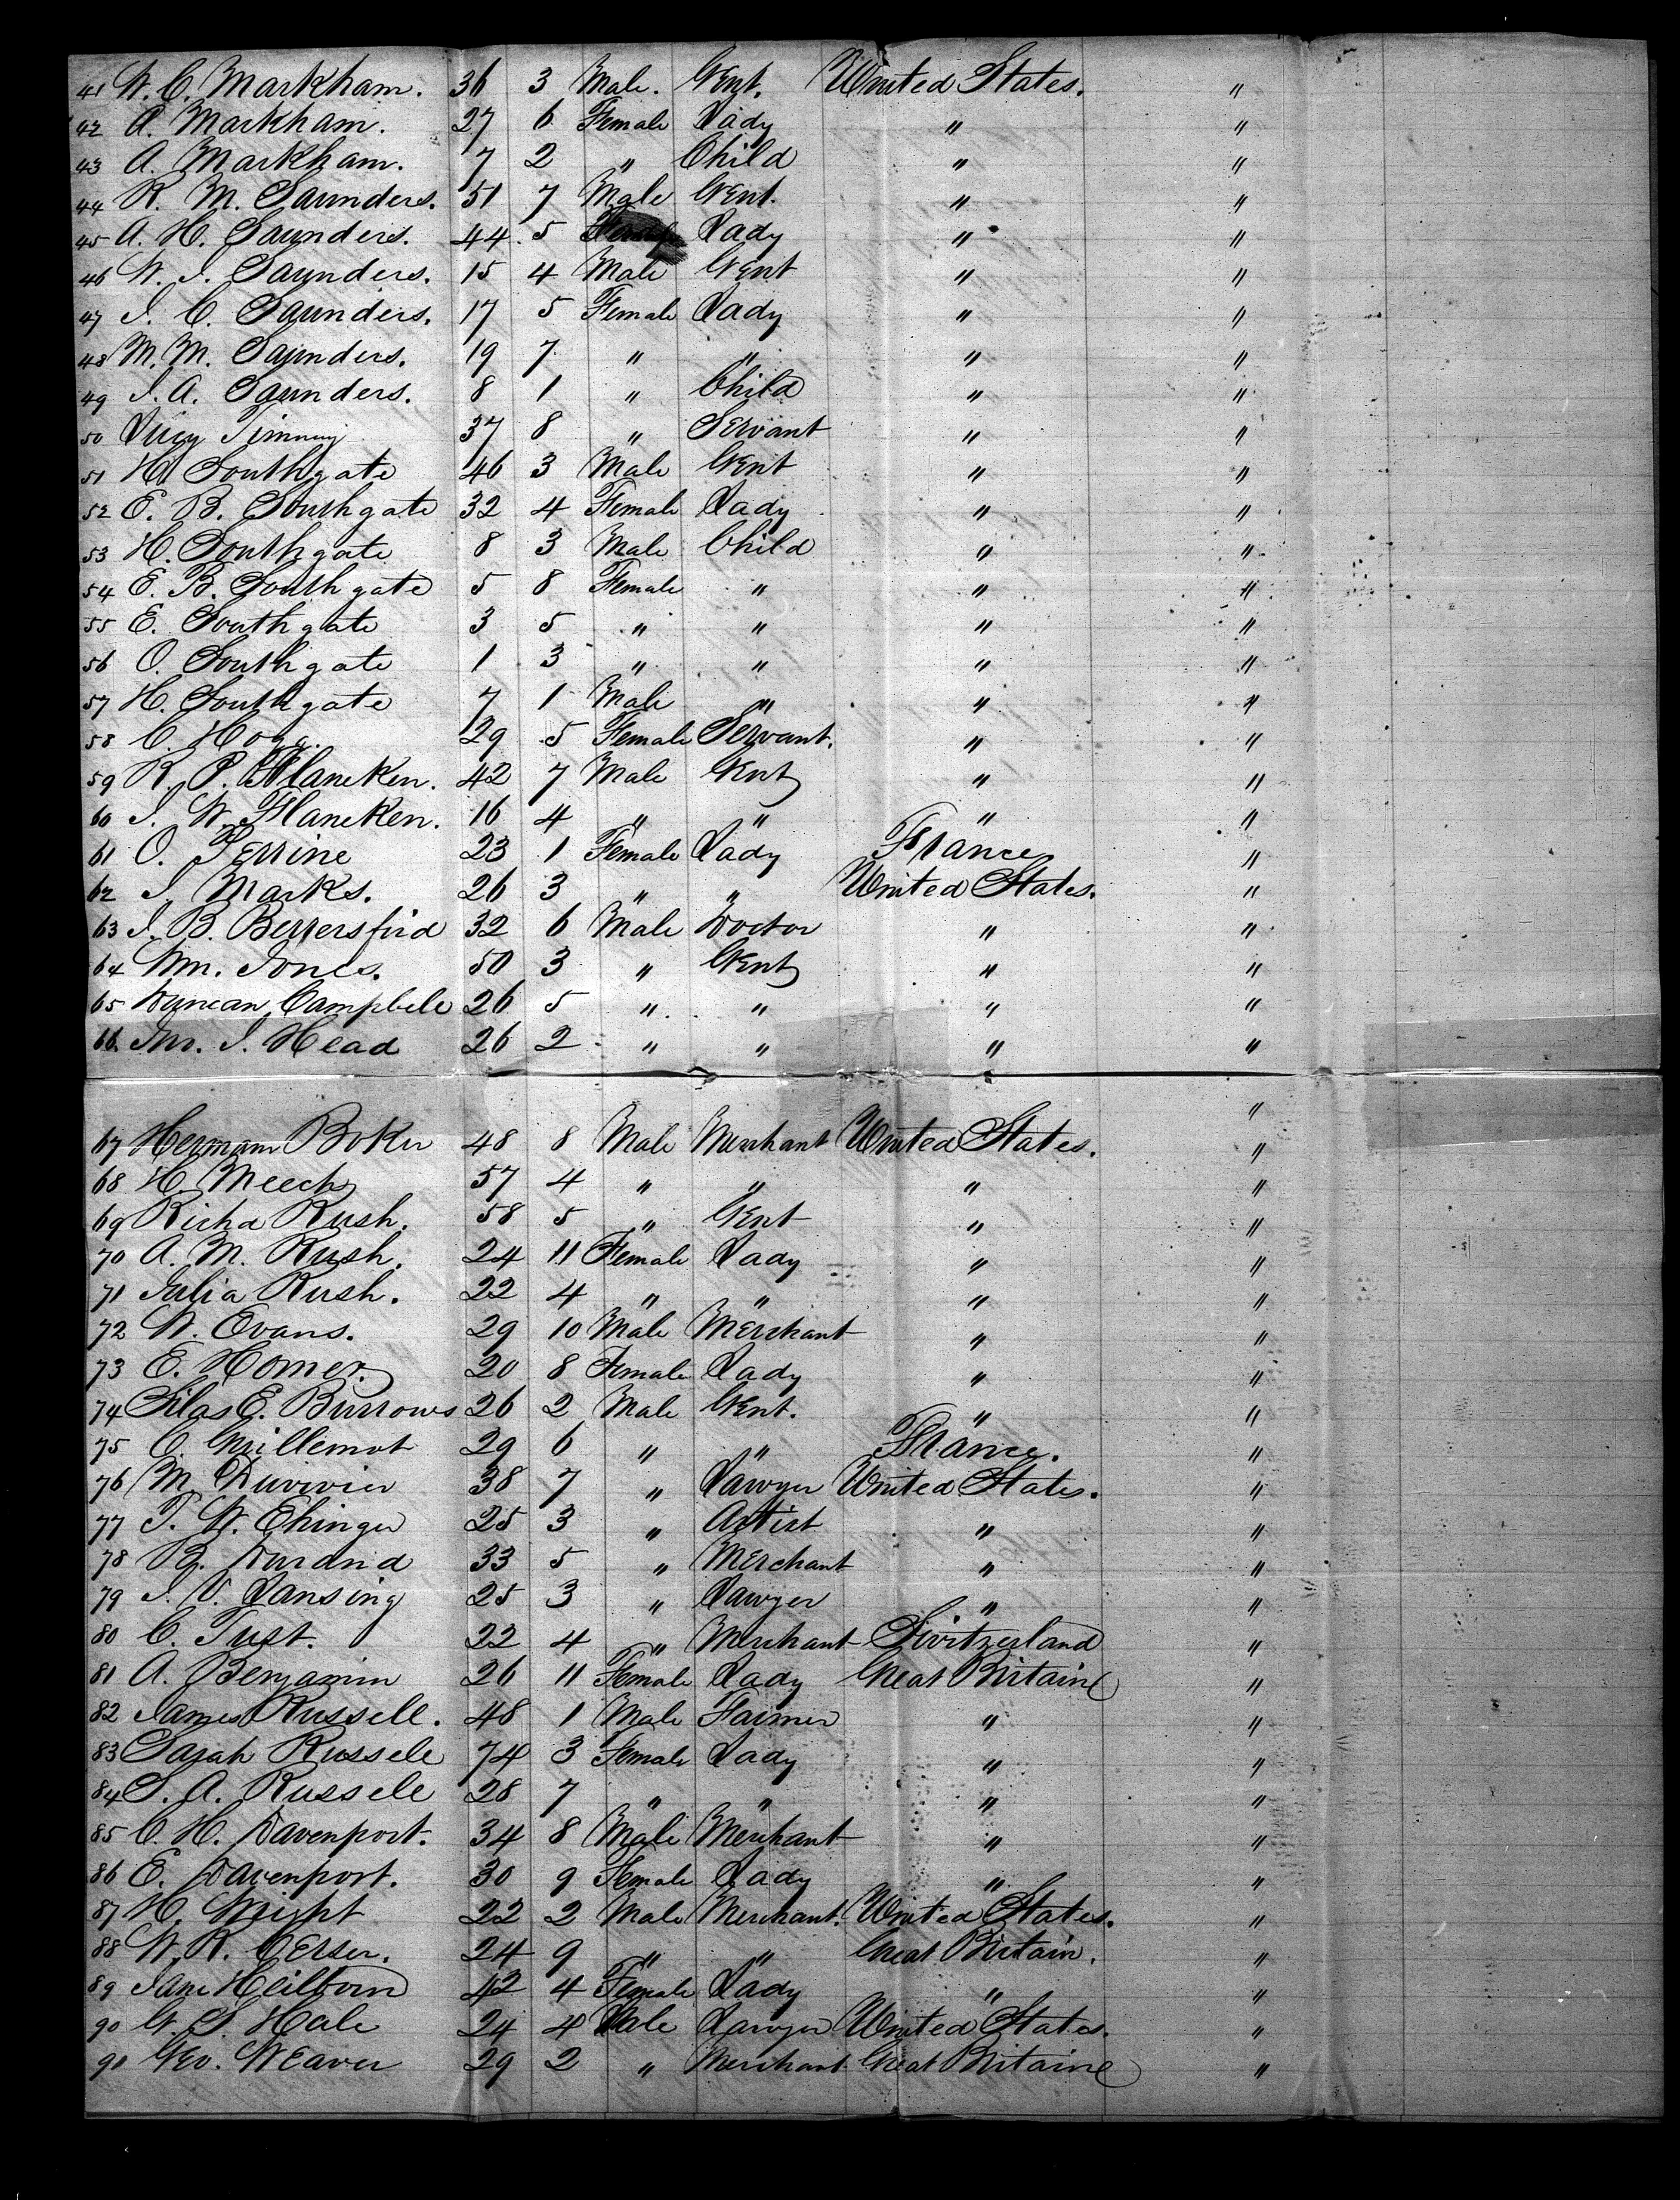 41 W. C. Markham. 36 3 Male. Gent. United States. "
42 A. Markham. 27 6 Female Lady " "
43 A. Markham. 7 2 " Child " "
44 R. M. Saunders. 51 7 Male Gent. " "
45 A. H. Saunders. 44 5 Lady " "
46 W. J. Saunders. 15 4 Male Gent " "
47 J. C. Saunders. 17 5 Female Lady " "
48 M. M. Saunders. 19 7 " " " "
49 J. A. Saunders. 8 1 " Child " "
50 Lucy 37 8 " Servant " "
51 H. Southgate 46 3 Male Gent " "
52 E. B. Southgate 32 4 Female Lady " "
53 H. Southgate 8 3 Male Child " "
54 E. B. Southgate 5 8 Female " " "
55 E. Southgate 3 5 " " " "
56 O. Southgate 1 3 " " " "
57 H. Southgate 7 1 Male " " "
58 C. 29 5 Female Servant. " "
59 R. P. 42 7 Male Gent " "
60 J. W. Flaneken. 16 4 " " " "
61 O. Perrine 23 1 Female Lady France "
62 J. Marks. 26 3 " " United States. "
63 J. B. Berrersford 32 6 Male Doctor " "
64 Wm. Jones. 50 3 " Gent " "
65 Duncan Campbell 26 5 " " " "
66 Jno. J. Head 26 2 " " " "
"
67 Hermann Boker 48 8 Male Merchant United States. "
68 H. Meech 57 4 " " " "
69 Richd Rush. 58 5 " Gent " "
70 A. M. Rush. 24 11 Female Lady " "
71 Julia Rush. 22 4 " " " "
72 W. Evans. 29 10 Male Merchant " "
73 E. Homer. 20 8 Female Lady " "
74 Silas E. Burrows 26 2 Male Gent. " "
75 C. Guillemot 29 6 " " France. "
76 M. Duvivier 38 7 " Lawyer United States. "
77 T. W. Ehinger 25 3 " Artist " "
78 B. Durand 33 5 " Merchant " "
79 J. V. Lansing 25 3 " Lawyer " "
80 C. Tust. 22 4 " Merchant Switzerland "
81 A. Benjamin 26 11 Female Lady Great Britain "
82 James Russell. 48 1 Male Farmer " "
83 Sarah Russell 74 3 Female Lady " "
84 S. A. Russell 28 7 " " " "
85 C. H. Davenport. 34 8 Male Merchant " "
86 E. Davenport. 30 9 Female Lady " "
87 H. Wright 22 2 Male Merchant. United States. "
88 W. R. 24 9 " " Great Britain. "
89 Jane Heilborn 42 4 Female Lady " "
90 G. S. Hale 24 4 Male Lawyer United States. "
91 Geo. Weaver 29 2 " Merchant Great Britain "